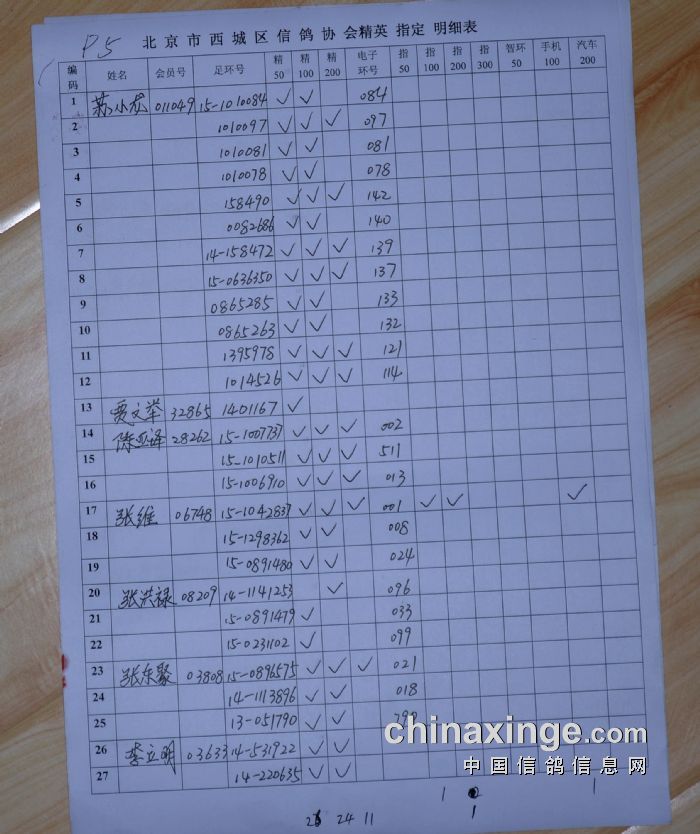 P5 北京市西城区信鸽协会精英 指定 明细表
编码 姓名 会员号 足环号 精50 精100 精200 电子环号 指50 指100 指200 指300 智环50 手机100 汽车200
1 苏小龙 011049 15-1010084 ✓ ✓ 084
2 1010097 ✓ ✓ ✓ 097
3 1010081 ✓ ✓ 081
4 1010078 ✓ ✓ 078
5 158490 ✓ ✓ ✓ 142
6 0082686 ✓ ✓ 140
7 14-158472 ✓ ✓ ✓ 139
8 15-0636350 ✓ ✓ ✓ 137
9 0865285 ✓ ✓ 133
10 0865263 ✓ ✓ 132
11 1395978 ✓ ✓ ✓ 121
12 1014526 ✓ ✓ ✓ 114
13 贾文举 32865 1401167 ✓
14 28262 15-1007737 ✓ ✓ ✓ 002
15 15-1010511 ✓ ✓ ✓ 511
16 15-1006910 ✓ ✓ ✓ 013
17 张维 06748 15-1042837 ✓ ✓ ✓ 001 ✓ ✓ ✓
18 15-1298362 ✓ ✓ 008
19 15-0891480 ✓ ✓ 024
20 张洪禄 08209 14-1141253 ✓ 096
21 15-0891479 ✓ 033
22 15-0231102 ✓ 099
23 张东聚 03808 15-0896575 ✓ ✓ ✓ 021
24 14-1113896 ✓ ✓ 018
25 13-051790 ✓ ✓
26 李立明 03633 14-531922 ✓ ✓
27 14-220635 ✓ ✓
chinaxinge.com
中国信鸽信息网
1 2 1
24 11 1